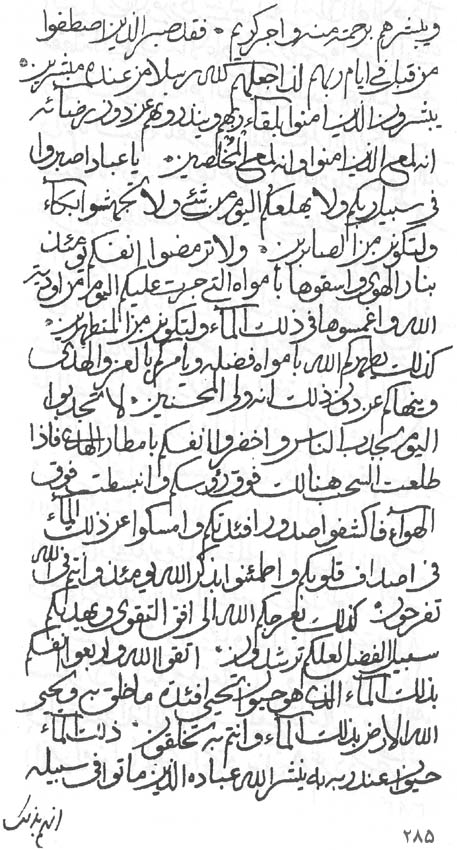 ويبشرهم برحمة منه واجر كريم فقد صبر الذين اصطفوا
من قبل في ايام ربهم لذا جعلهم الله رسلا من عنده مبشرين
يبشرون الذين امنوا بلقاء ربهم وينذرونهم عن دون رضائه
انه لمع الذين امنوا وانه لمع المخلصين يا عباد اصبروا
في سبيل ربكم ولا يهلعكم اليوم من شئ ولا تجهشوا بكاء
ولتكونن من الصابرين ولا ترمضوا انفسكم يومئذ
بنار الهوى واسقوها بأمواه التي جرت عليكم اليوم من
الله واغمسوها في ذلك الماء ولتكونن من المتطهرين
كذلك يطهركم الله بامواه فضله ويأمركم بالعز والهدى
وينهاكم عن دون ذلك انه ولي المحسنين لا تجدبوا
اليوم كجدب الناس واخضروا انفسكم بامطار فاذا
طلعت السحب هنالك فوق رؤسكم وانبسطت فوق
الهواء فاكشفوا صدور افئدتكم وامسكوا عن ذلك الماء
في اصداف قلوبكم واطمئنوا بذكر الله يومئذ وانتم في الله
تفرحون كذلك يعرجكم الله الى افق التقوى ويهديكم
سبيل الفضل لعلكم ترشدون اتقوا الله واربعوا انفسكم
بذلك الماء الذي هو حيوان تحيى افئدة ما خلق به ويحيى
الله الارض بذلك الماء وانتم به تخلقون ذلك الماء
حيوان عند ربه به ينشر الله عباده الذين ماتوا في سبيله
٢٨٥